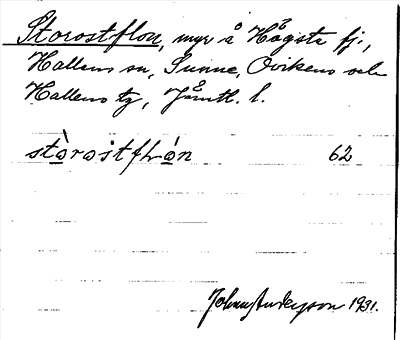 Storostflon, myr å Högsta fj.,
Hallens sn, Sunne, Ovikens och
Hallens tg, Jämtl. l.
stòrostflón 62
Johnny Andersson 1931.